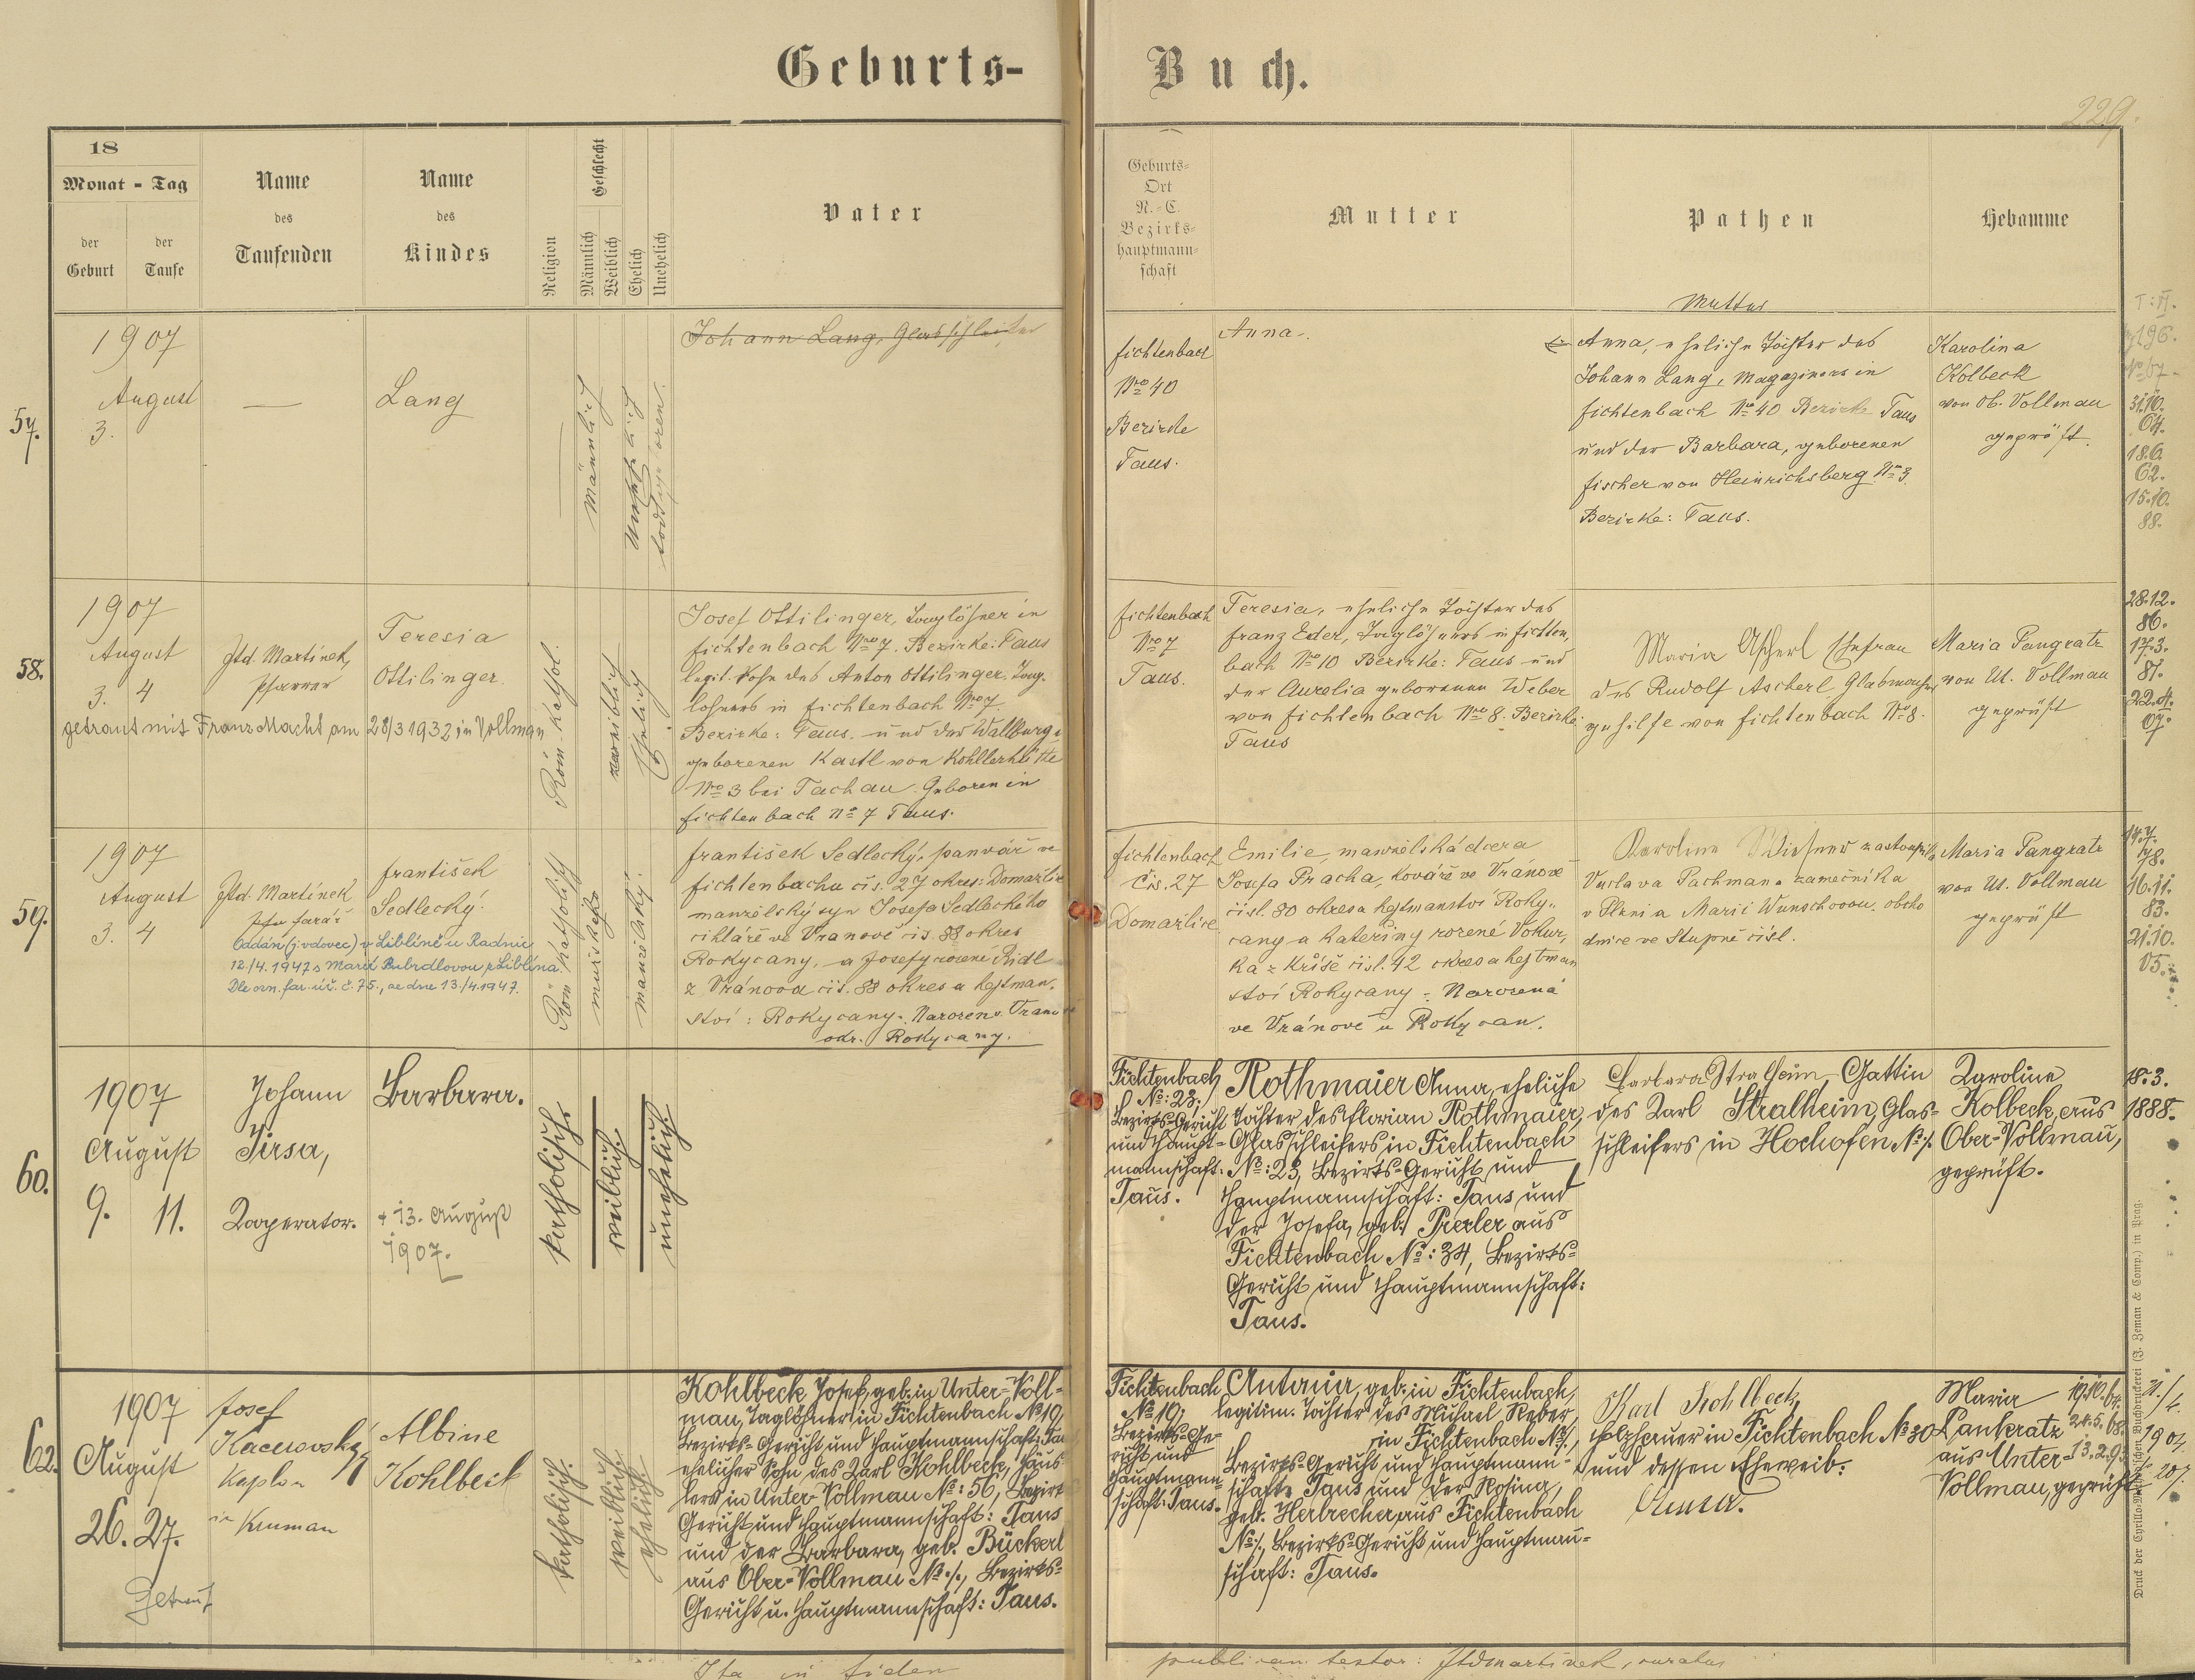 Geburts-Buch.
229.
18
Monat - Tag
der Geburt
der Taufe
Name des Taufenden
Name des Kindes
Religion
Geschlecht
Männlich
Weiblich
Ehelich
Unehelich
Vater
Geburts-
Ort
N.-C.
Bezirks-
hauptmann-
schaft
Mutter
Pathen
Hebamme
57.
1907
August
3.
—
Lang
Männlich
Unehelich
todtgeboren.
Johann Lang, Glasschleifer
Fichtenbach
Nro 40
Bezirke
Taus.
Anna.
Mutter
Anna, eheliche Tochter des
Johann Lang, Magaziners in
Fichtenbach Nro 40 Bezirk Taus
und der Barbara, geborenen
Fischer von Heinrichsberg No 3.
Bezirke: Taus.
Karolina
Kolbeck
von Ob. Vollmau
geprüft.
31.10.
64.
18.6.
62.
15.10.
88.
58.
1907
August
3. 4
Jtd. Martínek,
Pfarrer
Teresia
Ottilinger.
getraut mit Franz Macht am 28/3 1932 in Vollmau
Röm. Kathol.
weiblich
Ehelich
Josef Ottilinger, Taglöhner in
Fichtenbach Nro 7. Bezirke: Taus
legit. Sohn des Anton Ottilinger, Tag-
löhners in Fichtenbach No 7.
Bezirke: Taus. und der Wallburga
geborenen Kastl von Kohllerhütte
Nro 3 bei Tachau. Geboren in
Fichtenbach No 7 Taus.
Fichtenbach
Nro 7
Taus.
Teresia, eheliche Tochter des
Franz Eder, Taglöhners in Fichten-
bach No 10 Bezirke: Taus und
der Aurelia geborenen Weber
von Fichtenbach Nro 8. Bezirke:
Taus
Maria Ascherl Ehefrau
des Rudolf Ascherl, Glasmacher
gehilfe von Fichtenbach No 8.
Maria Pangratz
von Ut. Vollmau
geprüft
28.12.
86.
17.3.
81.
22.4.
07.
59.
1907
August
3. 4
Jtd. Martínek
farář
František
Sedlecký.
Oddán (j. vdovec) v Liblíně u Radnic
12./4. 1947 s Marií Bubrdlovou z Liblína.
Dle ozn. far. úř. č. 75., ze dne 13./4. 1947.
Řím. Katholický
mužského
manželský.
František Sedlecký, panvář ve
Fichtenbachu čís. 27 okres: Domažlice
manželský syn Josefa Sedleckého
cihláře ve Vranově čís. 88 okres
Rokycany, a Josefy rozené Ridl
z Vránova čís. 88 okres a hejtman-
ství: Rokycany. Narozen v Vranově
okr. Rokycany.
Fichtenbach
Čís. 27
Domažlice
Emilie, manželská dcera
Josefa Pracha, kováře ve Vránově
čísl. 80 okres a hejtmanství Roky-
cany a Kateřiny rozené Vokur-
ka z Kříše čísl. 42 okres a hejtman
ství Rokycany. Narozená
ve Vránově u Rokycan.
Karolina Wiesner zastoupila
Václava Pachmana zamečníka
v Plzni a Marii Wunschovou, obcho
dnice ve Stupně čísl.
Maria Pangratz
von Ut. Vollmau
geprüft
14.7.
78.
16.11.
83.
21.10.
05.
60.
1907
August
9. 11.
Johann
Jirsa,
Kooperator.
Barbara.
+ 13. August
1907.
katholisch.
weiblich.
unehelich.
Fichtenbach
No: 23;
Bezirks-Gericht
und Haupt-
mannschaft:
Taus.
Rothmaier Anna, eheliche
Tochter des Florian Rothmaier,
Glasschleifers in Fichtenbach
No: 23, Bezirks-Gericht und
Hauptmannschaft: Taus und
der Josefa, geb. Prerler aus
Fichtenbach No: 34, Bezirks-
Gericht und Hauptmannschaft:
Taus.
Barbara Stralheim, Gattin
des Karl Stralheim, Glas-
schleifers in Hochofen No /.
Karoline
Kolbeck, aus
Ober-Vollmau,
geprüft.
18.3.
1888.
62.
1907
August
26. 27.
Getauft
Josef
Kacerovský
Kaplan
in Kruman
Albine
Kohlbeck
katholisch.
weiblich.
ehelich.
Kohlbeck Josef, geb. in Unter-Voll-
mau, Taglöhner in Fichtenbach No 19,
Bezirks-Gericht und Hauptmannschaft: Taus
ehelicher Sohn des Karl Kohlbeck, Häus-
lers in Unter-Vollmau No: 56, Bezirks
Gericht und Hauptmannschaft: Taus
und der Barbara, geb. Bückerl
aus Ober-Vollmau No /., Bezirks-
Gericht u. Hauptmannschaft: Taus.
Fichtenbach
No 19;
Bezirks-Ge-
richt und
Hauptmann-
schaft: Taus.
Antonia, geb. in Fichtenbach,
legitim. Tochter des Michael Reber,
in Fichtenbach No /.,
Bezirks-Gericht und Hauptmann-
schaft: Taus und der Rosina,
geb. Herbrecher aus Fichtenbach
No /., Bezirks-Gericht und Hauptmann-
schaft: Taus.
Karl Kohlbeck,
Holzhauer in Fichtenbach No 30
und dessen Eheweib:
Anna.
Maria
Pankratz
aus Unter-
Vollmau, geprüft
19.10.64.
24.5.68.
13.2.9
1904.
Ita in fidem
publicam testor: Jtd. Martínek, curatus
Druck der Cyrillo-Method'schen Buchdruckerei (J. Zeman & Comp.) in Prag.